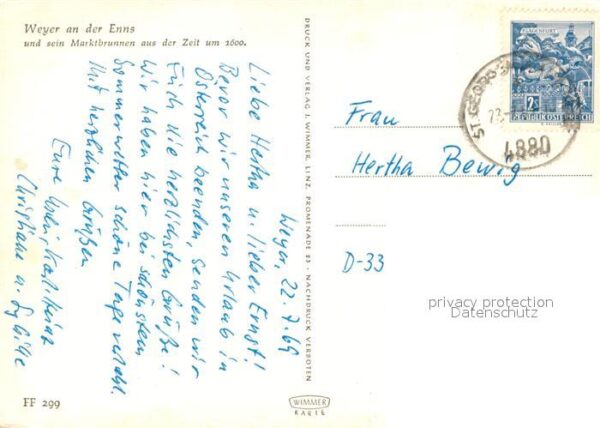 Weyer an der Enns
und sein Marktbrunnen aus der Zeit um 1600.
Weyer, 22.7.69
Liebe Hertha u. lieber Ernst!
Bevor wir unseren Urlaub in
Österreich beenden, senden wir
Euch die herzlichsten Grüße!
Wir haben hier bei schönstem
Sommerwetter schöne Tage verlebt.
Mit herzlichen Grüßen
Eure
Christiane u. Sybille
DRUCK UND VERLAG J. WIMMER, LINZ, PROMENADE 23 - NACHDRUCK VERBOTEN
KLAGENFURT
2S
REPUBLIK ÖSTERREICH
ST. GEORGEN
4880
Frau
Hertha Bewig
D-33
privacy protection
Datenschutz
FF 299
WIMMER
KARTE